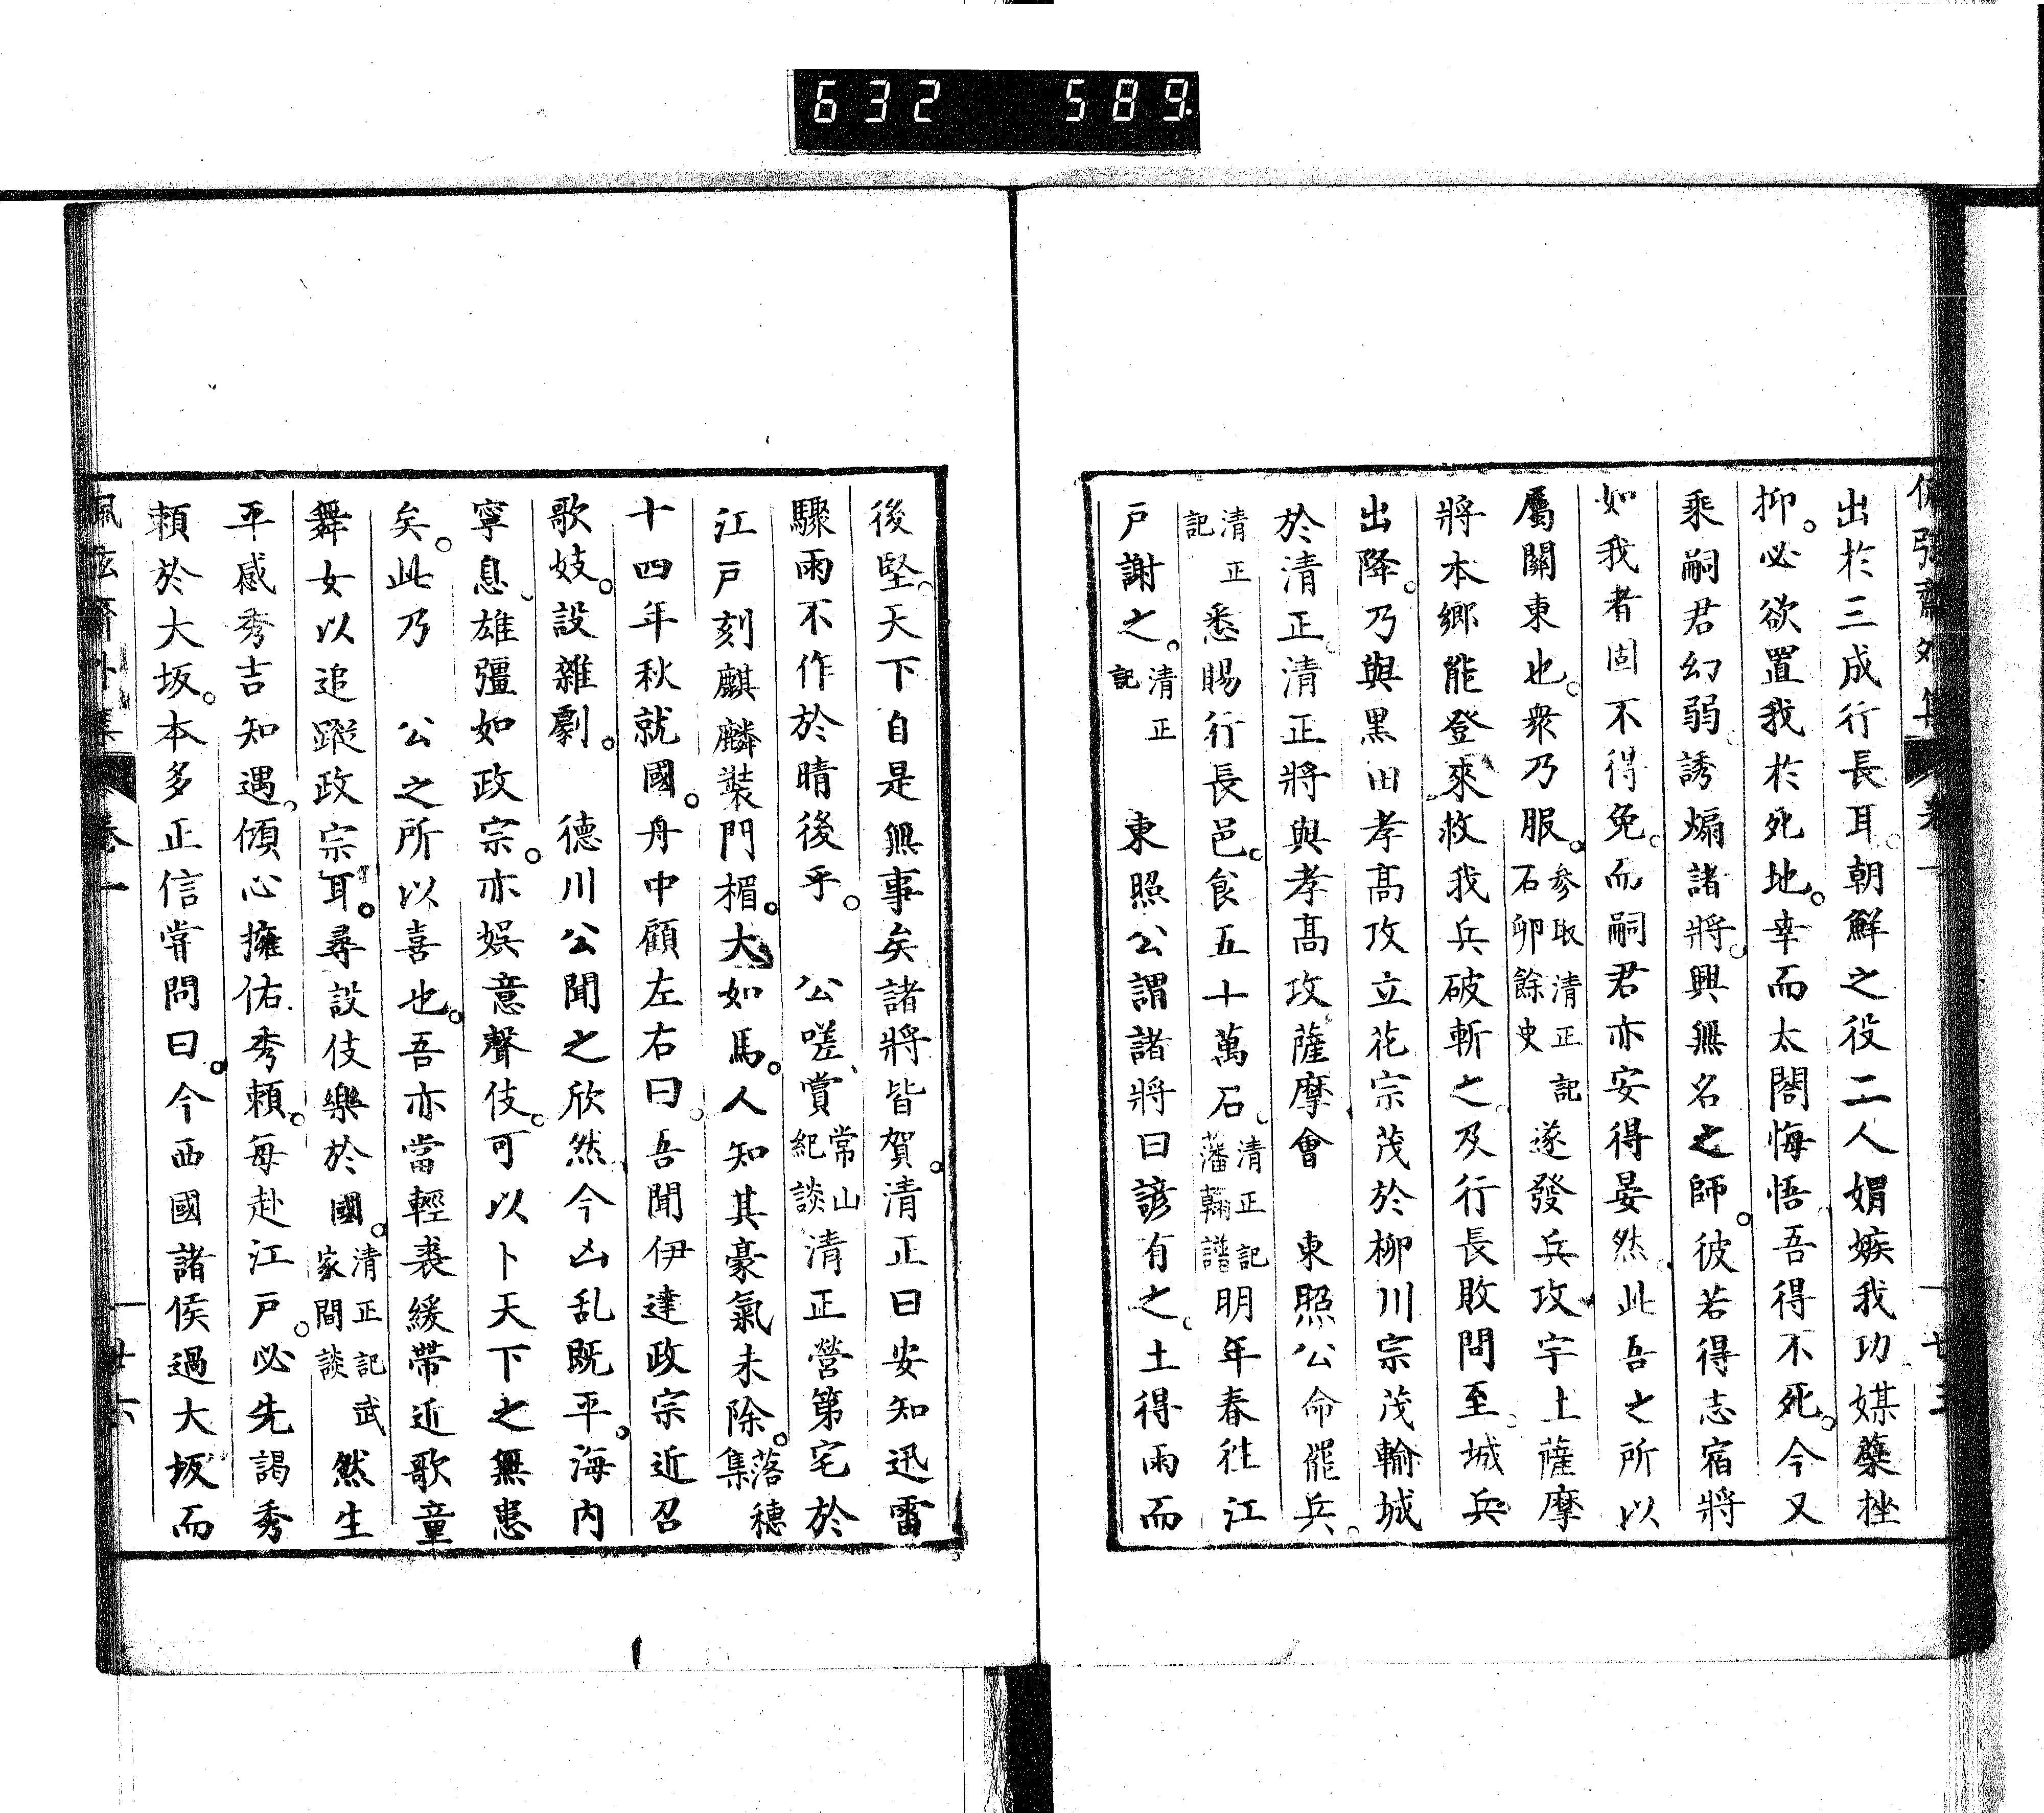 632 589
出於三成行長耳朝鮮之役二人媢嫉我功媒蘖挫
抑。必欲置我於死地。幸而太閤悔悟吾得不死。今又
乘嗣君幻弱誘煽諸將。興無名之師。彼若得志宿將
如我者固不得免。而嗣君亦安得晏然。此吾之所以
屬關東也。衆乃服。参取清正記石卵餘史遂發兵攻宇土薩摩
將本鄉能登來救我兵破斬之及行長敗問至。城兵
出降。乃與黒田孝高攻立花宗茂於柳川宗茂輸城
於清正。清正將與孝高攻薩摩會　東照公命罷兵。
清正記悉賜行長邑。食五十萬石。清正記藩翰譜明年春往江
戸謝之。清正記　東照公謂諸將曰諺有之。土得雨而
後堅。天下自是無事矣諸將皆賀。清正曰安知迅雷
驟雨不作於晴後乎。　公嗟賞常山紀談清正營第宅於
江戸刻麒麟裝門楣。大如馬。人知其豪氣未除。落穗集
十四年秋就國。舟中顧左右曰。吾聞伊達政宗近召
歌妓。設雜劇。　德川公聞之欣然今凶乱既平。海内
寧息。雄彊如政宗。亦娯意聲伎。可以卜天下之無患
矣。此乃　公之所以喜也。吾亦當輕裘緩帶近歌童
舞女以追蹤政宗耳。尋設伎樂於國。清正記武家間談然生
平感秀吉知遇。傾心擁佑秀頼。每赴江戸。必先謁秀
頼於大坂。本多正信甞問曰。今西國諸侯過大坂而
佩弦齋外集　卷一　廿六